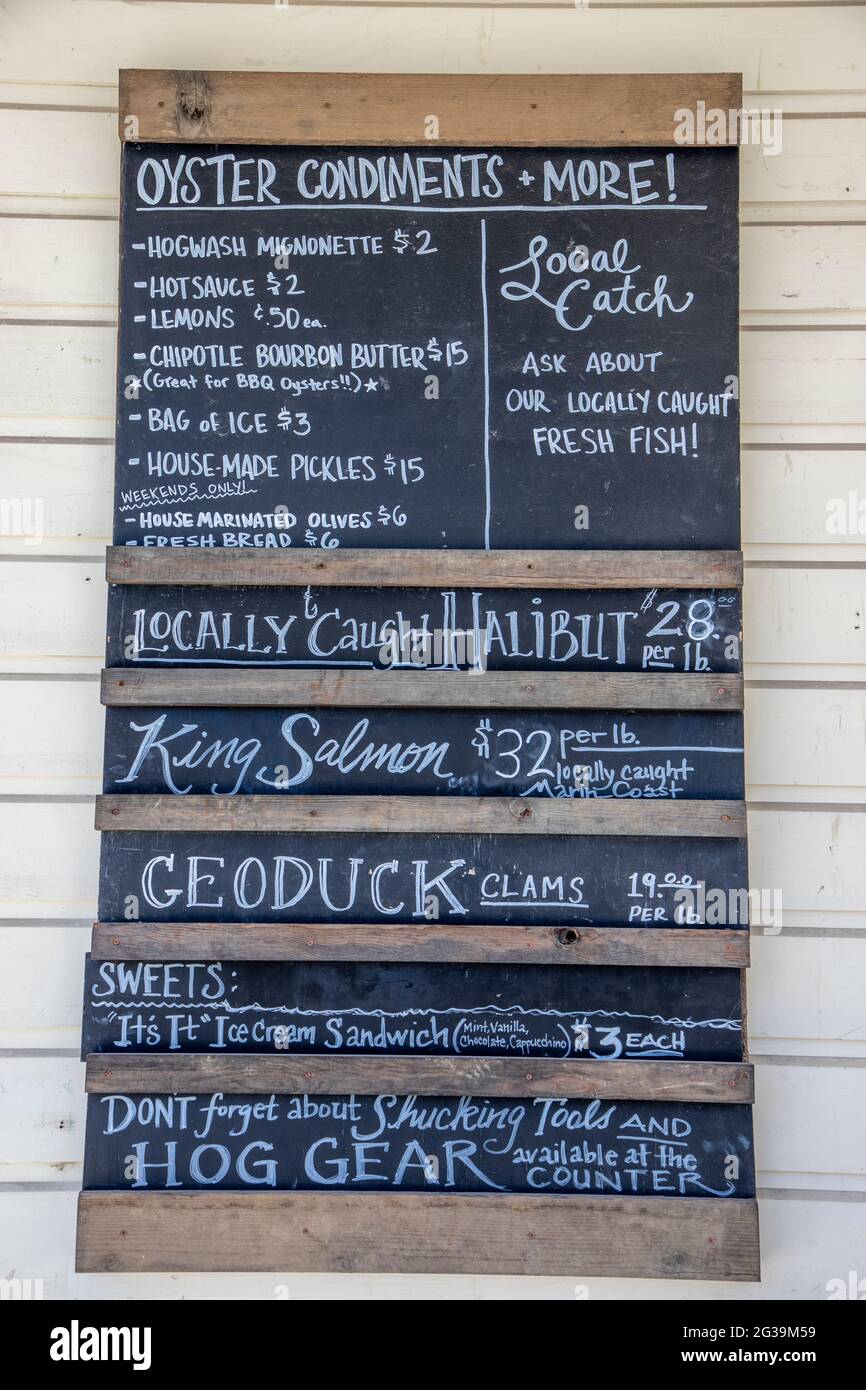 OYSTER CONDIMENTS + MORE!
- HOGWASH MIGNONETTE $2
- HOT SAUCE $2
- LEMONS ¢.50 ea.
- CHIPOTLE BOURBON BUTTER $15
★(Great for BBQ Oysters!!)★
- BAG of ICE $3
- HOUSE-MADE PICKLES $15
WEEKENDS ONLY!
- HOUSE MARINATED OLIVES $6
- FRESH BREAD $6
Local
Catch
ASK ABOUT
OUR LOCALLY CAUGHT
FRESH FISH!
LOCALLY Caught HALIBUT $28.00
per lb.
King Salmon $32 per lb.
locally caught
Marin Coast
GEODUCK CLAMS 19.00
PER lb.
SWEETS:
"It's It" Ice Cream Sandwich (Mint, Vanilla,
Chocolate, Cappuchino) $3 EACH
DONT forget about Shucking Tools AND
HOG GEAR available at the
COUNTER
alamy
Image ID: 2G39M59
www.alamy.com